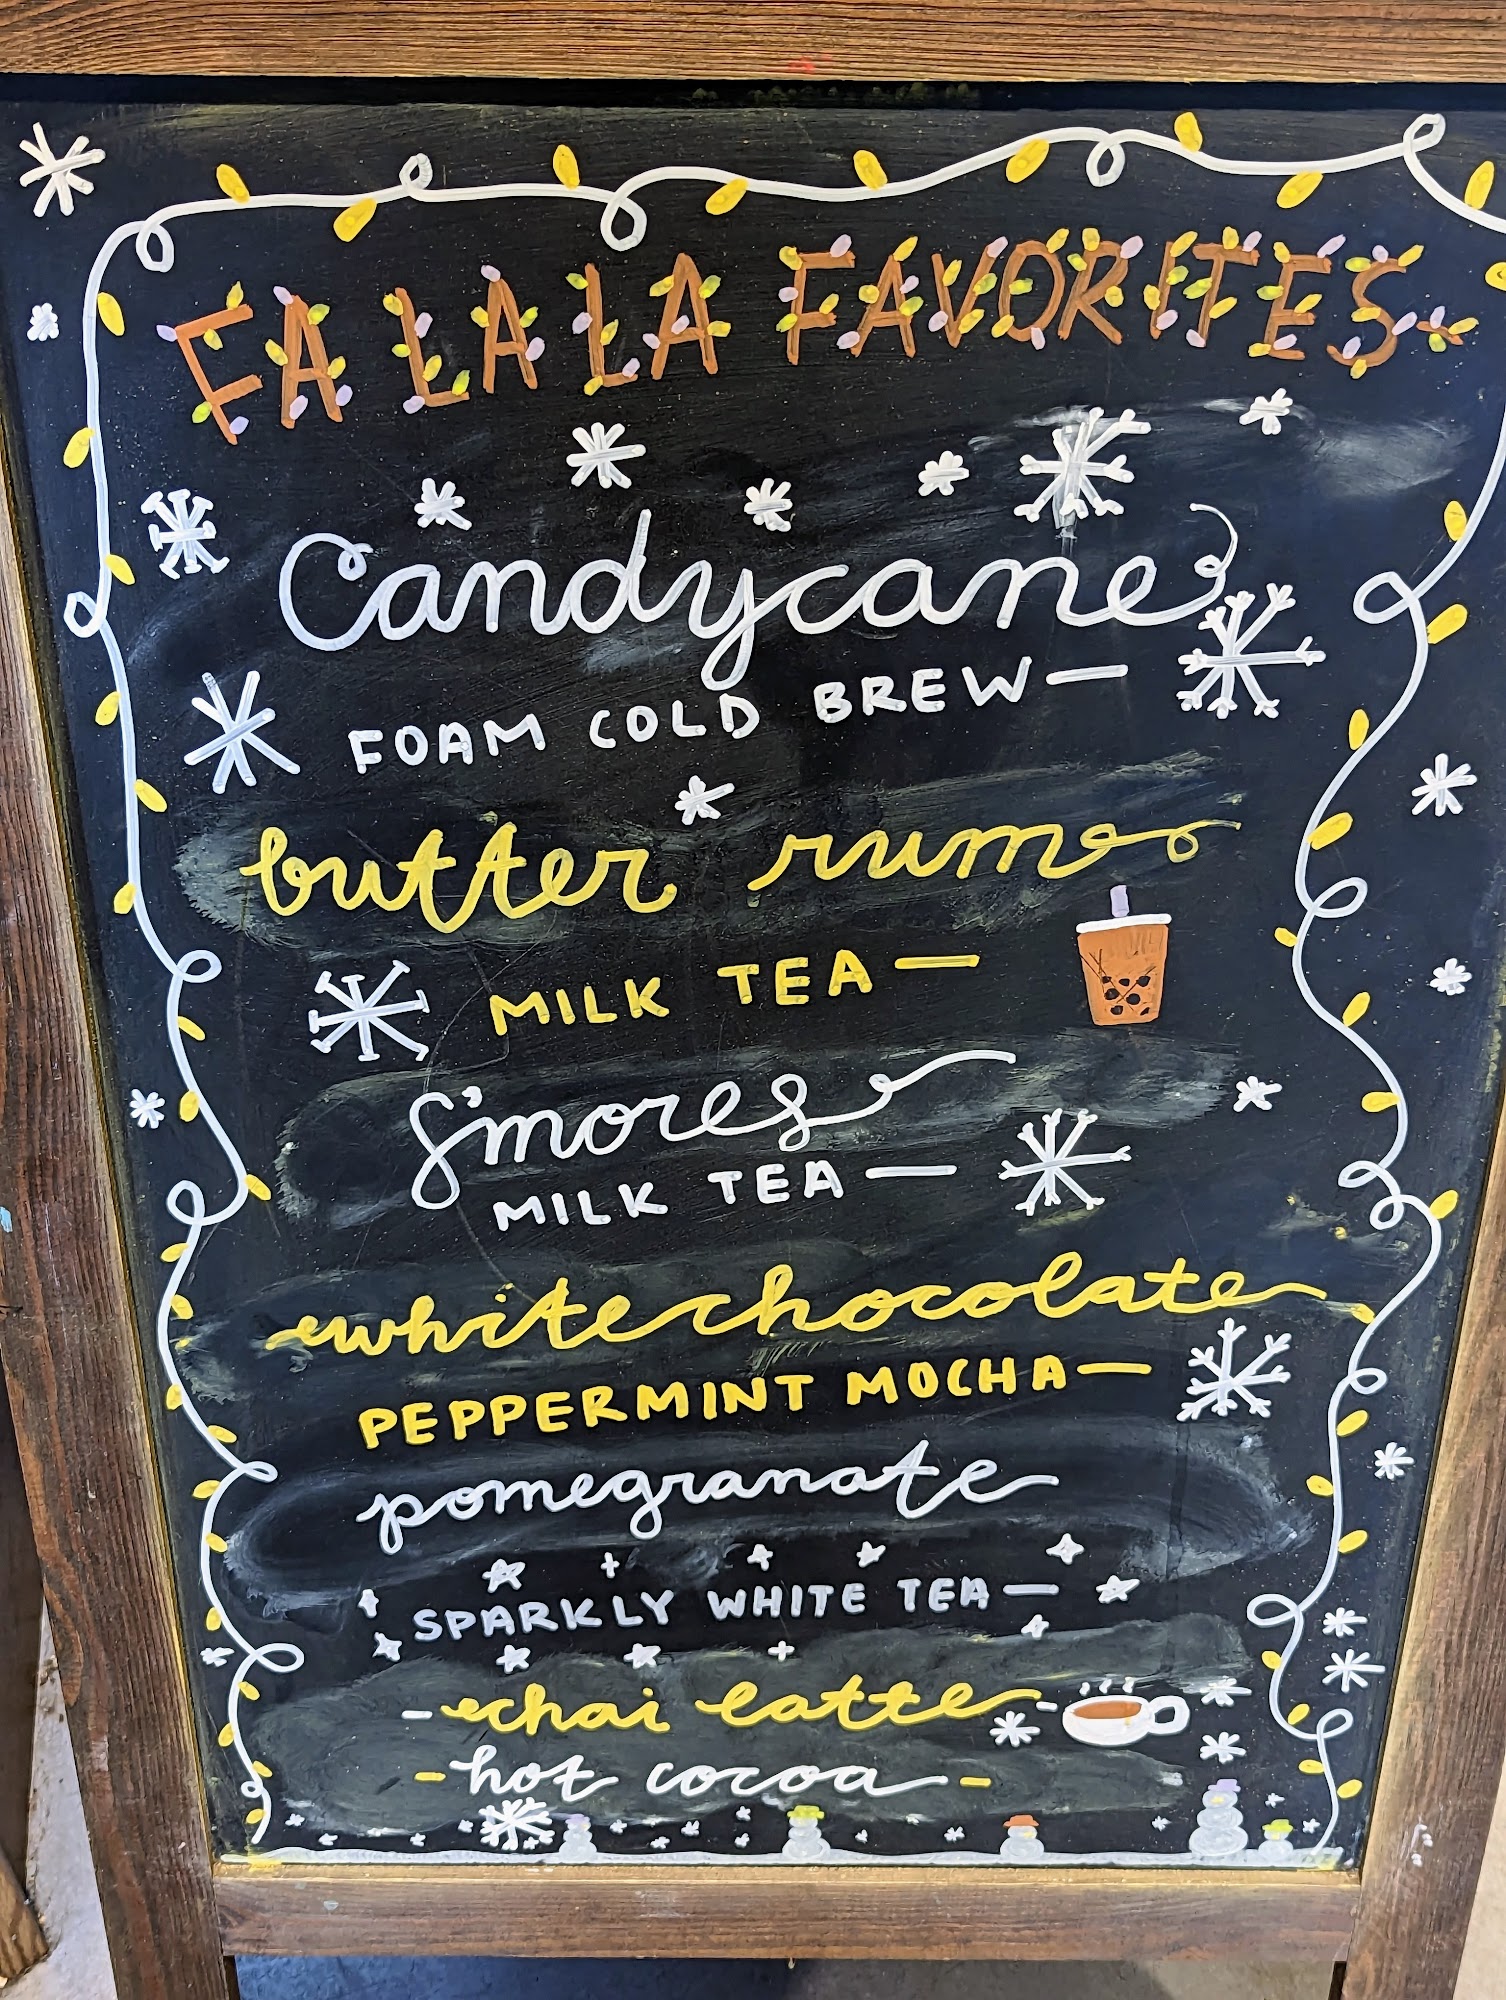 FA LA LA FAVORITES
Candycane
FOAM COLD BREW—
butter rum
MILK TEA—
S'mores
MILK TEA—
white chocolate
PEPPERMINT MOCHA—
pomegranate
SPARKLY WHITE TEA—
-chai latte-
-hot cocoa-